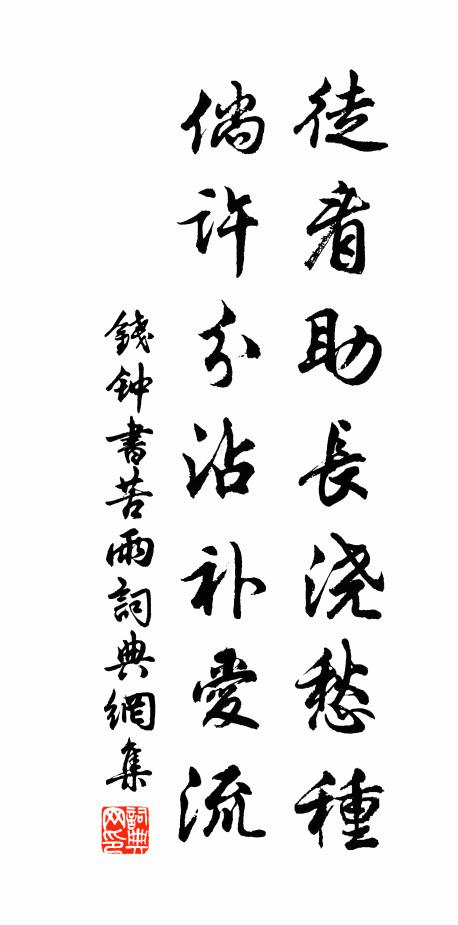 徒看助長浇愁種
倘許分沾补愛流
錢钟書苦雨詞典網集
詞典
网印